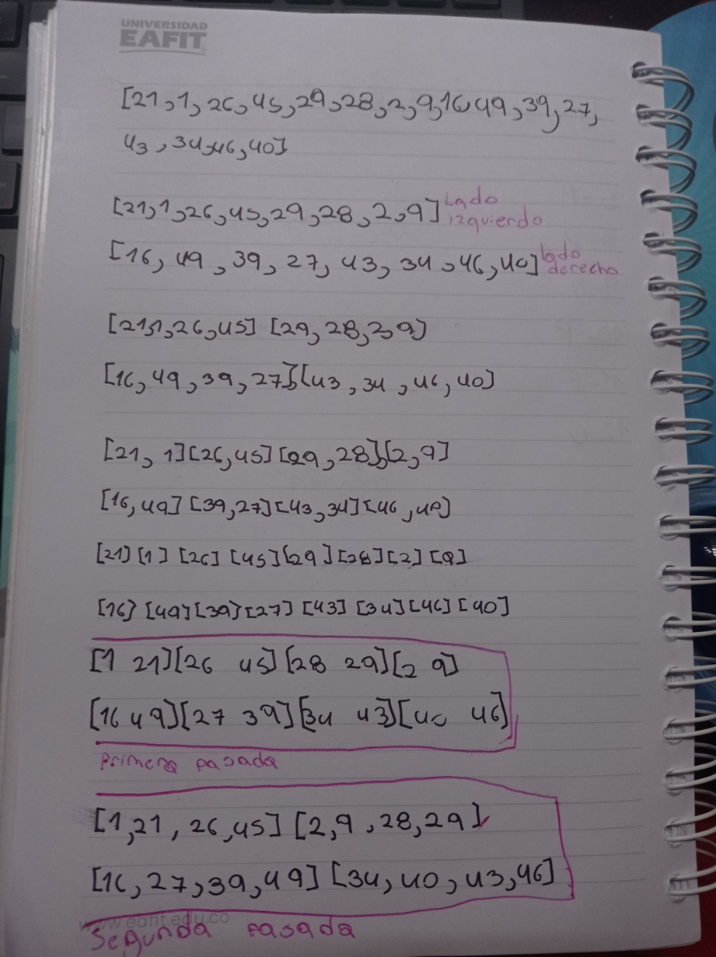 UNIVERSIDAD
EAFIT
[21,1,26,45,29,28,2,9,16,49,39,27,
43,34,46,40]
[21,1,26,45,29,28,2,9] Lado izquierdo
[16,49,39,27,43,34,46,40] lado derecho
[21,1,26,45] [29,28,2,9]
[16,49,39,27],[43,34,46,40]
[21,1][26,45][29,28],[2,9]
[16,49][39,27][43,34][46,40]
[21][1][26][45][29][28][2][9]
[16][49][39][27][43][34][46][40]
[1 21][26 45][28 29][2 9]
[16 49][27 39][34 43][40 46]
Primera pasada
[1,21,26,45] [2,9,28,29]
[16,27,39,49] [34,40,43,46]
www.eafit.edu.co
Segunda pasada